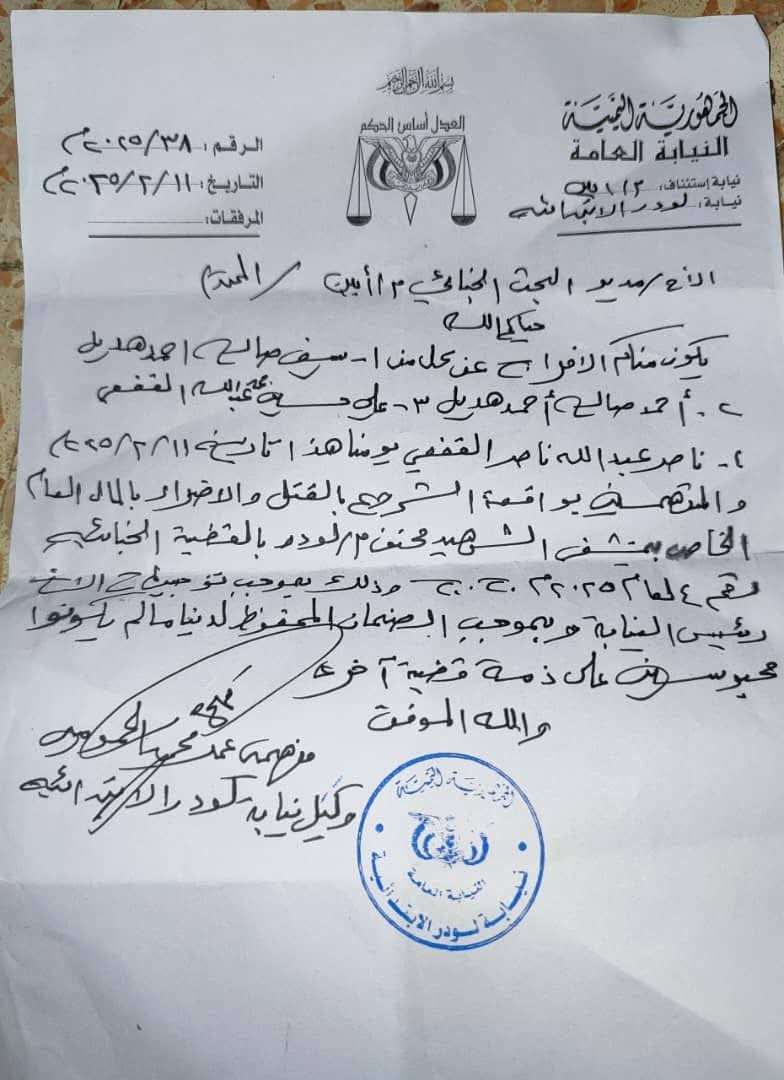 بسم الله الرحمن الرحيم
الجمهورية اليمنية
النيابة العامة
نيابة إستئناف: م/ابين
نيابة: لودر الابتدائيه
العدل أساس الحكم
الرقم: ٣٨/٢٠٢٥م
التاريخ: ١١/٢/٢٠٢٥م
المرفقات:
الأخ/مدير البحث الجنائي م/أبين المحترم
حياكم الله
يكون منكم الافراج عن كل من ١- سيف صالح احمد هديل
٢- أحمد صالح أحمد هديل ٣- علي عبدالله القفعي
ناصر عبدالله ناصر القفعي يومنا هذا تاريخ ١١/٢/٢٠٢٥م
والمتهمين بواقعة الشروع بالقتل والاضرار بالمال العام
الخاص بمستشفى الشهيد محنف م/لودر بالقضية الجنائيه
رقم ٤ لعام ٢٠٢٥م ج.ج وذلك بموجب توجيهات الاخ
رئيس النيابة وبموجب الضمان المحفوظ لدينا مالم يكونوا
محبوسين على ذمة قضية أخرى
والله الموفق
وكيل نيابة لودر الابتدائيه
الجمهورية اليمنية
النيابة العامة
نيابة لودر الابتدائية